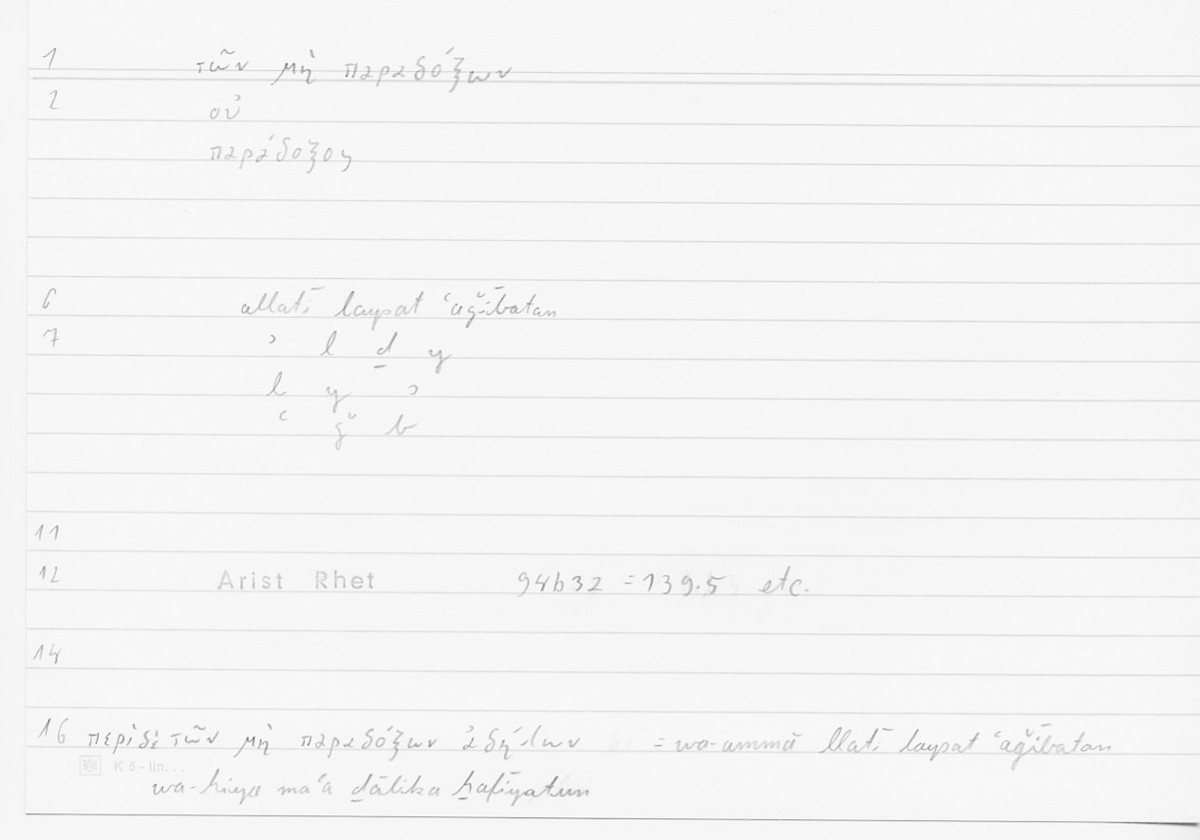 1 τῶν μὴ παραδόξων
2 οὐ
παράδοξος
6 allatī laysat ʿaǧībatan
7 ʾ l ḏ y
l y ʾ
ʿ ǧ b
11
12 Arist Rhet 94b32 = 139.5 etc.
14
16 περὶ δὲ τῶν μὴ παραδόξων ἀδήλων = wa-ammā llatī laysat ʿaǧībatan
K 5-lin...
wa-hiya maʿa ḏālika ḫafīyatun